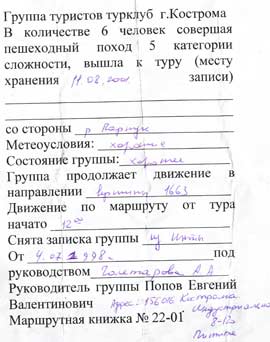 Группа туристов турклуб г.Кострома
В количестве 6 человек совершая
пешеходный поход 5 категории
сложности, вышла к туру (месту
хранения 11.08.2001 записи)
со стороны р
Метеоусловия: хорошие
Состояние группы: хорошее
Группа продолжает движение в
направлении вершины 1663
Движение по маршруту от тура
начато 12
Снята записка группы из Инты
От 4.07.1998 г. под
руководством А А
Руководитель группы Попов Евгений
Валентинович Адрес: 156016 Кострома
Маршрутная книжка № 22-01